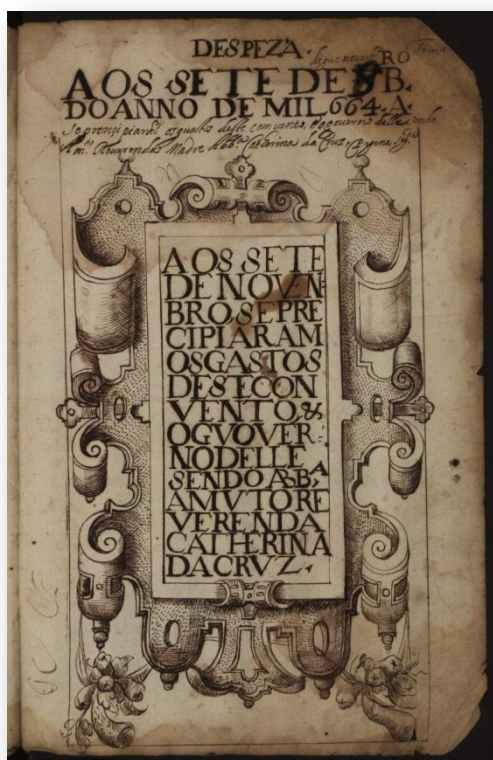 DESPEZA.
AOS SETE DE 9B.RO
DO ANNO DE MIL.664.A.
Se prençipiaraõ os gastos deste convento, e o governo delle sendo
A m.to Reverenda Madre Abb.a Catherina da Cruz
AOS SETE
DE NOVEN
BRO SE PRE
CIPIARAM
OS GASTOS
DESTE CON
VENTO, &
O GVOVER
NO DELLE
SENDO ABB,A
A MVTO RE
VERENDA
CATHERINA
DA CRVZ.